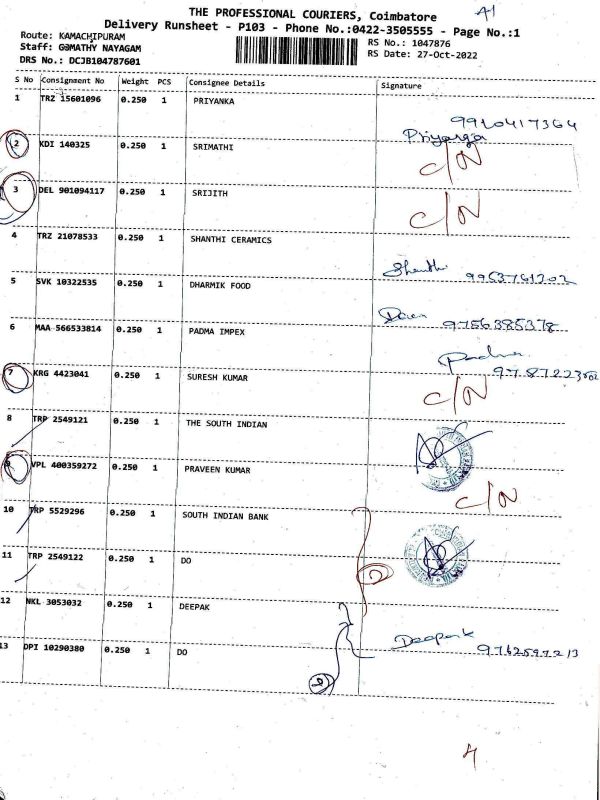 THE PROFESSIONAL COURIERS, Coimbatore
A1
Delivery Runsheet - P103 - Phone No.:0422-3505555 - Page No.:1
Route: KAMACHIPURAM
Staff: GOMATHY NAYAGAM
DRS No.: DCJB104787601
RS No.: 1047876
RS Date: 27-Oct-2022
S No Consignment No Weight PCS Consignee Details Signature
1 TRZ 15601096 0.250 1 PRIYANKA
9920417364
2 KDI 140325 0.250 1 SRIMATHI C/N
3 DEL 901094117 0.250 1 SRIJITH C/N
4 TRZ 21078533 0.250 1 SHANTHI CERAMICS
Shanthi 9963761202
5 SVK 10322535 0.250 1 DHARMIK FOOD
9756385378
6 MAA 566533814 0.250 1 PADMA IMPEX
Padma
7 KRG 4423041 0.250 1 SURESH KUMAR C/N
8 TRP 2549121 0.250 1 THE SOUTH INDIAN
9 VPL 400359272 0.250 1 PRAVEEN KUMAR C/N
10 TRP 5529296 0.250 1 SOUTH INDIAN BANK
11 TRP 2549122 0.250 1 DO
12 NKL 3053032 0.250 1 DEEPAK
Deepak 9762597213
13 DPI 10290380 0.250 1 DO